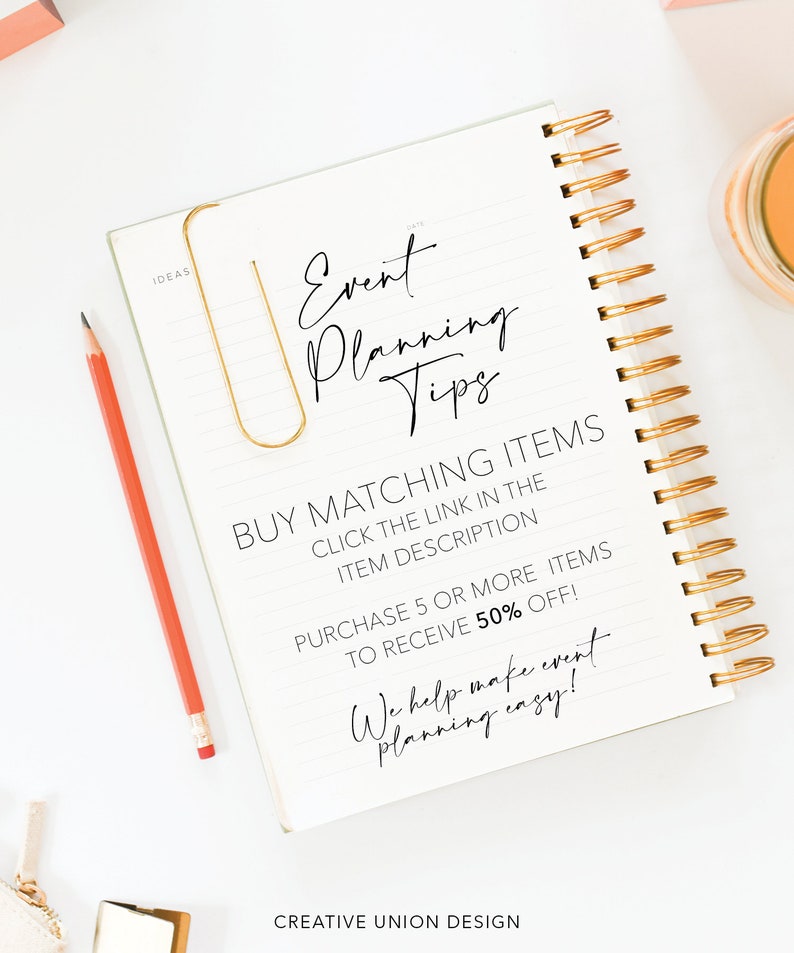 DATE:
IDEAS
Event
Planning
Tips
BUY MATCHING ITEMS
CLICK THE LINK IN THE
ITEM DESCRIPTION
PURCHASE 5 OR MORE ITEMS
TO RECEIVE 50% OFF!
We help make event
planning easy!
CREATIVE UNION DESIGN